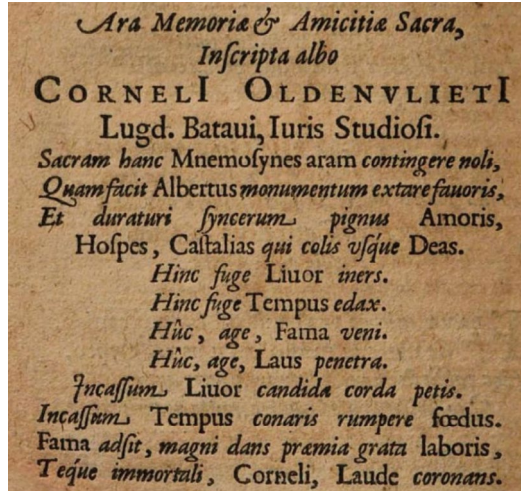 Ara Memoriæ & Amicitiæ Sacra,
Inſcripta albo
CORNELI OLDENVLIETI
Lugd. Bataui, Iuris Studioſi.
Sacram hanc Mnemoſynes aram contingere noli,
Quam facit Albertus monumentum extare fauoris,
Et duraturi ſyncerum pignus Amoris,
Hoſpes, Caſtalias qui colis vſq́ue Deas.
Hinc fuge Liuor iners.
Hinc fuge Tempus edax.
Hûc, age, Fama veni.
Hûc, age, Laus penetra.
Incaſſum Liuor candida corda petis.
Incaſſum Tempus conaris rumpere fœdus.
Fama adſit, magni dans præmia grata laboris,
Teq́ue immortali, Corneli, Laude coronans.